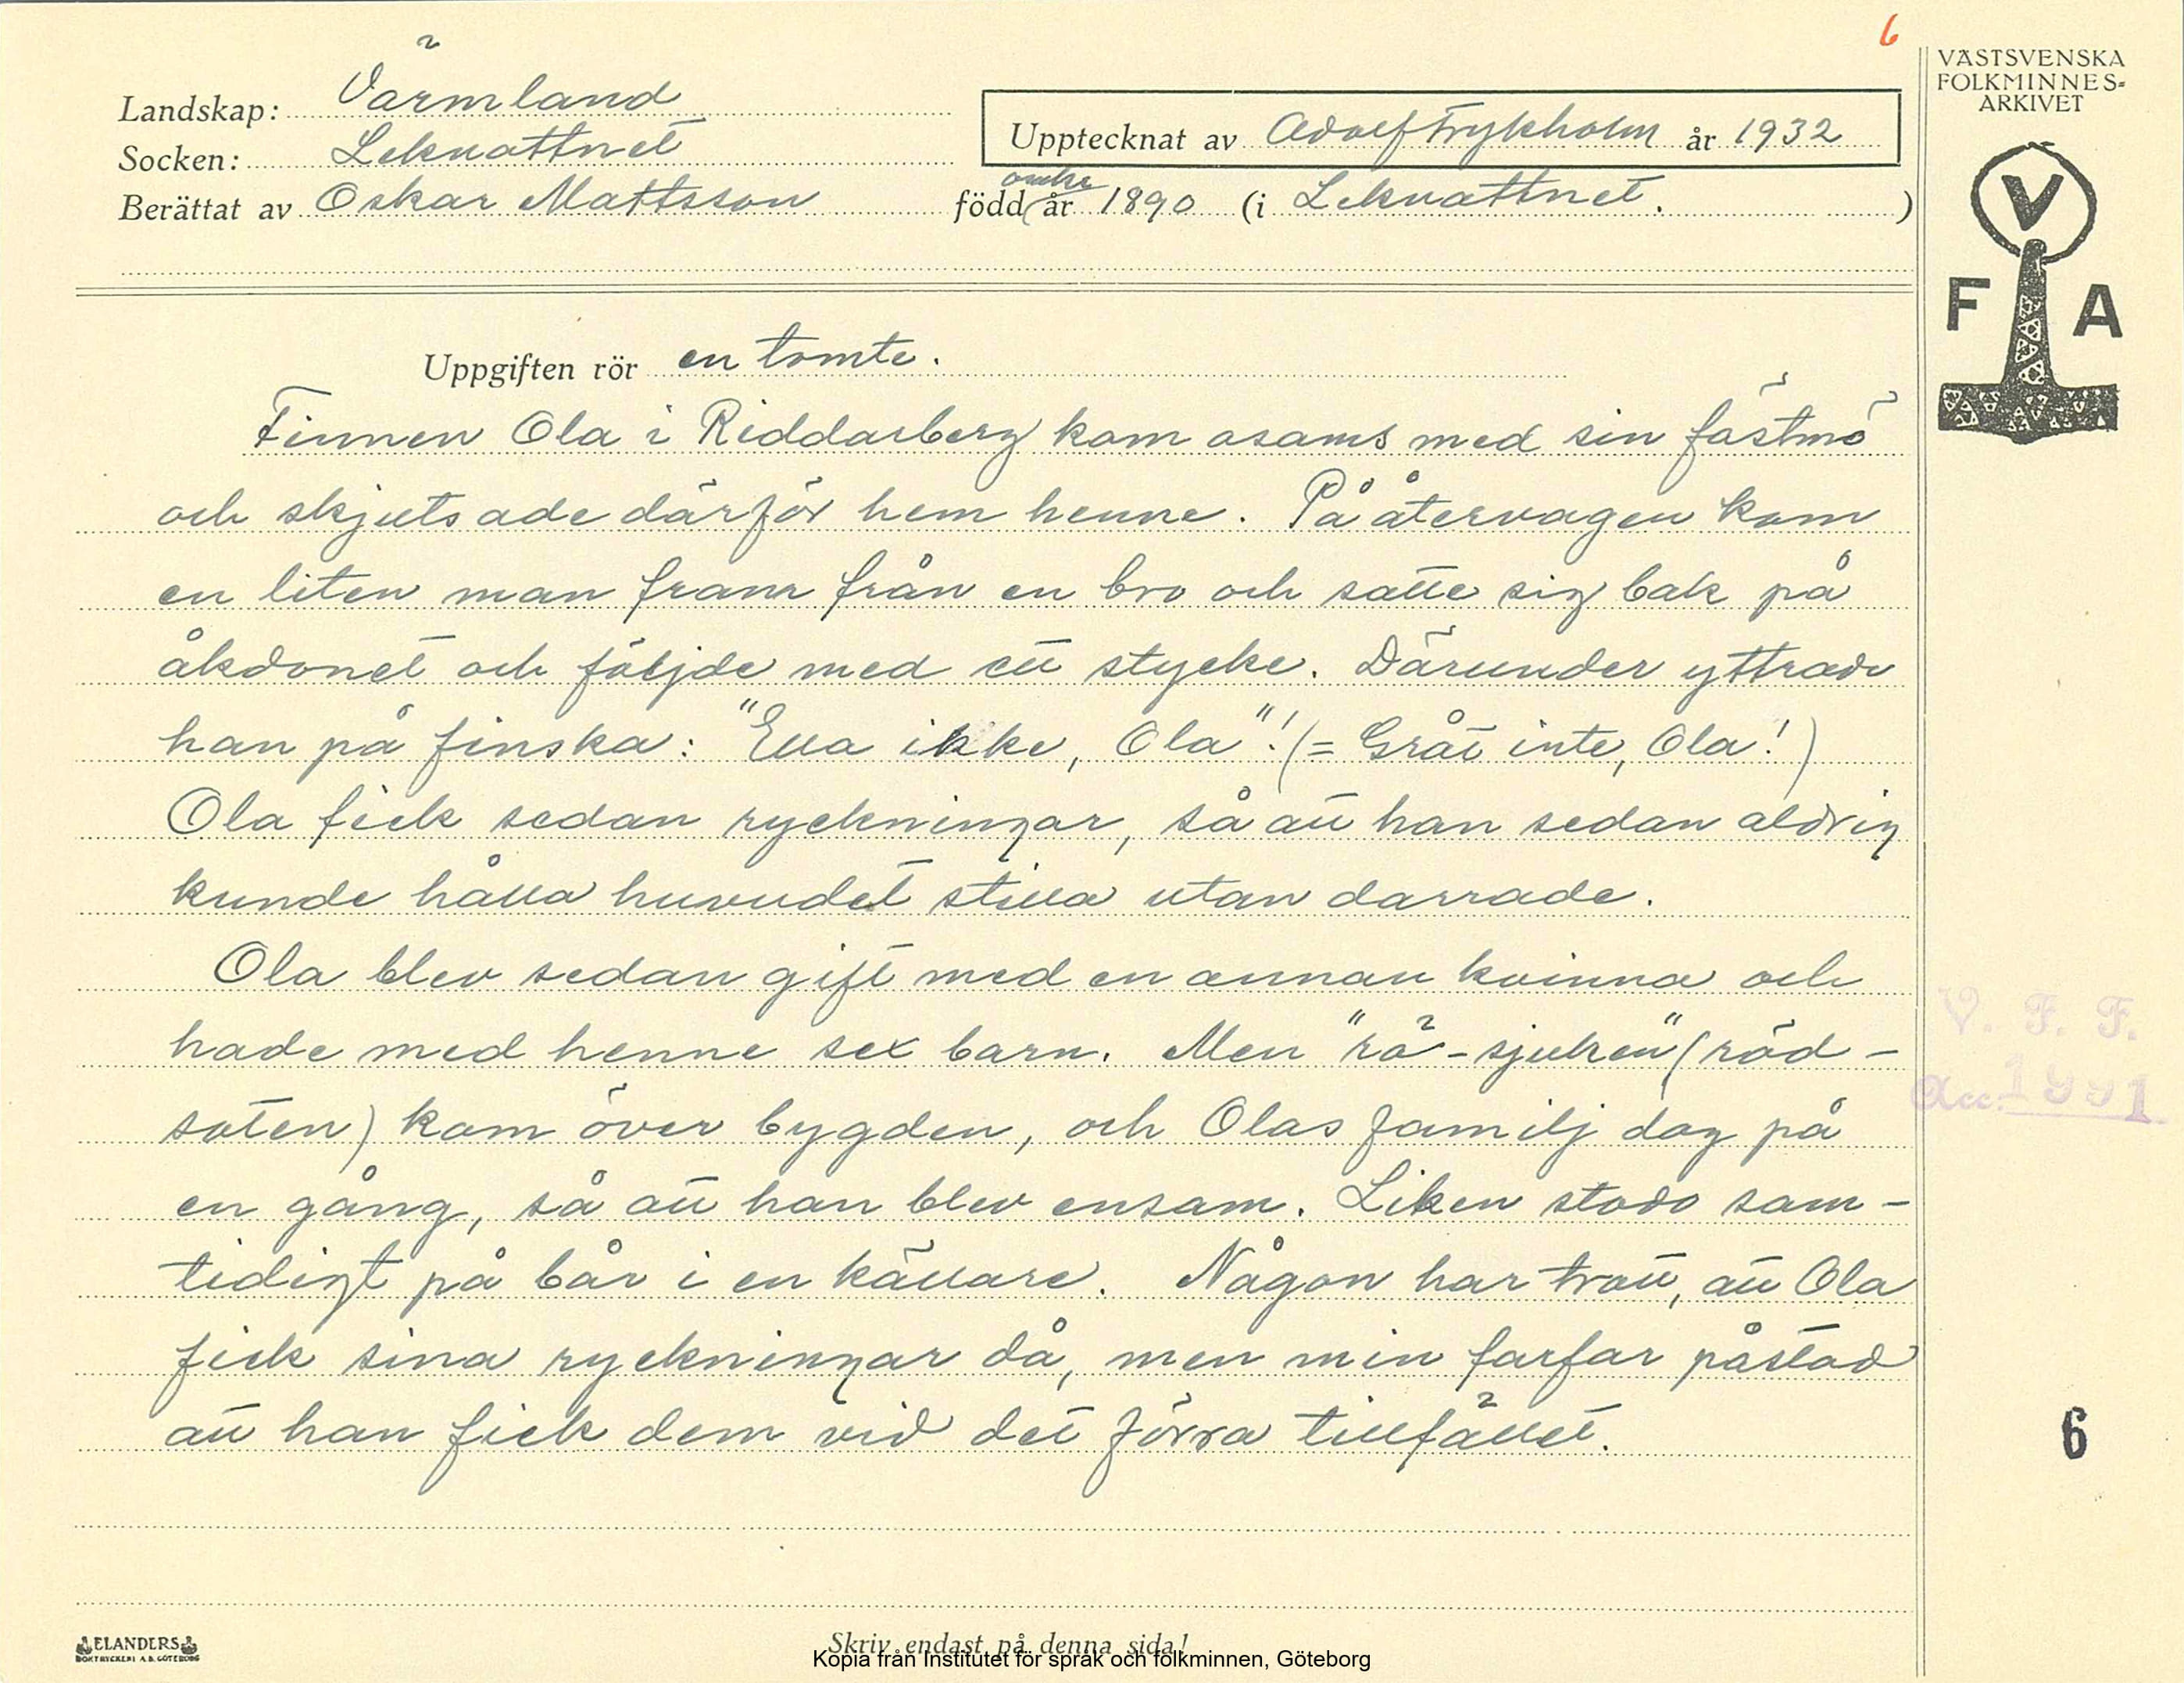 6
VÄSTSVENSKA
FOLKMINNES-
ARKIVET
V
F A
Landskap: Värmland
Socken: Lekvattnet
Berättat av Oskar Mattsson
Upptecknat av Adolf Frykholm år 1932
omkr
född år 1890 (i Lekvattnet. )
Uppgiften rör en tomte.
Finnen Ola i Riddarberg kom osams med sin fästmö
och skjutsade därför hem henne. På återvägen kom
en liten man fram från en bro och satte sig bak på
åkdonet och följde med ett stycke. Därunder yttrade
han på finska: "Ella ikke, Ola"! (= Gråt inte, Ola!)
Ola fick sedan ryckningar, så att han sedan aldrig
kunde hålla huvudet stilla utan darrade.
Ola blev sedan gift med en annan kvinna och
hade med henne sex barn. Men "rö-sjuken" (röd-
soten) kom över bygden, och Olas familj dog på
en gång, så att han blev ensam. Liken stodo sam-
tidigt på bår i en källare. Någon har trott, att Ola
fick sina ryckningar då, men min farfar påstod
att han fick dem vid det förra tillfället.
V. F. F.
Acc. 1991
6
ELANDERS
BOKTRYCKERI A.B. GÖTEBORG
Skriv endast på denna sida!
Kopia från Institutet för språk och folkminnen, Göteborg